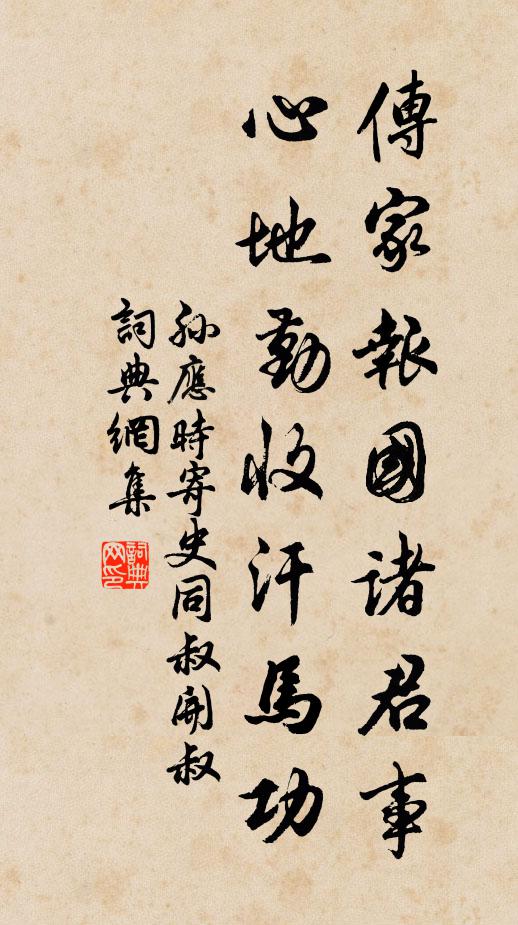 傳家報國諸君事
心地勤收汗馬功
孙應時寄史同叔開叔
詞典網集
詞典網印